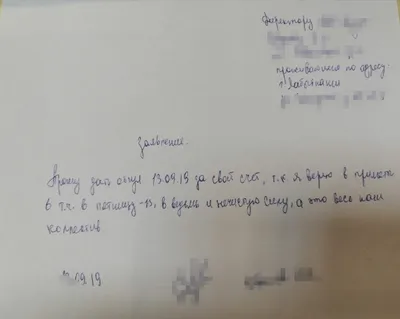 Директору
проживающей по адресу
г. Хабаровск
Заявление.
Прошу дать отгул 13.09.19 за свой счет, т.к. я верю в приметы
в т.ч. в пятницу-13, в ведьм и нечистую силу, а это весь наш
коллектив
.09.19